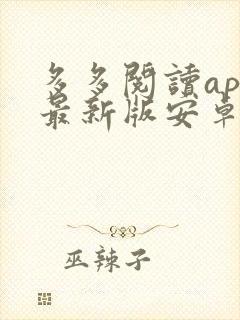 多多閱讀ap
最新版安卓
巫辣子